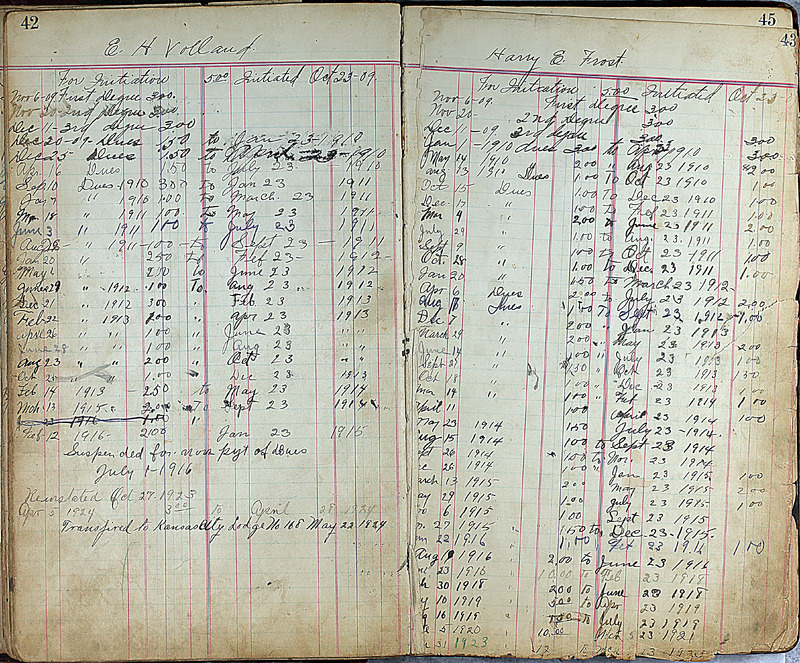 42
E. H Volland.
For Initiation 500 Initiated Oct 23-09.
Nov 6-09 First Degree 300
Nov 20 2nd Degree 300
Dec 11 - 3rd degree 300
Dec 20-09 Dues 150 to Jan 23-1910
Dec 25 Dues 1.50 to 23-1910
Apr 16 Dues 150 to July 23 1910
Sep 10 Dues 1910 300 to Jan 23 1911
Jan 7 " 1910 100 to March 23 1911
Mar 18 " 1911 100 to May 23 1911
June 3 " 1911 100 to July 23 1911
Aug 1911 - 100 - to Sept 23 - 1911
Jan 20 " 250 to Feb 23 - 1912 -
May " 200 to June 23 1912
June 29 " 1912 - 100 To Aug 23 " 1912 -
Dec 21 " 1912 300 " Feb 23 1913
Feb 22 " 1913 100 " Apr 23 1913
April 26 " " 100 " June 23 "
June 28 " " 100 " Aug 23 "
Aug 23 " " 200 " Oct 23 " "
Oct " " 100 " Dec 23 1913
Feb 14 1913 - 250 to May 23 1914
Mch 13 1915 200 to Sept 23
Feb 12 1916 - 200 Jan 23 1915 -
Suspended for non pyt of Dues
July 1 - 1916
Reinstated Oct 27-1923
Apr 5 1924 300 to April 28 1924
Transfired to Kansas City Lodge No 168 May 23 1924
45
43
Harry E. Frost.
For Initiation 500 Initiated Oct 23
Nov 6-09. First degree 300
Nov 20 2nd Degree 300
Dec 11-09 3rd degree 300
Jan 1 - 1910 dues 300 to Apr 1910 300
May 14 1910 200 " Aug 23 1910 300
Aug 13 1910 Dues 1.00 to Oct 23 1910 200
Oct 15 Dues 1.00 To Dec 23 1910 100
Dec - 17 " 100 " Feb 23 1911 100
Mar 4 " 200 " June 23 1911 200
July 29 " 1.00 to Aug. 23. 1911 1.00
Sept 9 " 100 to Oct 23 1911 100
Oct 28 " 1.00 to Dec 23 1911 1.00
Jan 20 " 150 to March 23 1912 -
Apr 6 Dues 2.00 to July 23 1912 200
Aug 17 Dues 100 To Sept 23 1912 1.00
Dec 7 " 200 " Jan 23 1913
March 29 200 " May 23 1913 200
June 14 " 100 " July 23 1913 100
Sept 27 " 150 " Oct 23 1913 150
Oct 18 " 100 " Dec 23 1913 100
" 100 " Feb 23 1914 100
April 11 " 100 April 23 1914 100
May 23 1914 150 July 23 - 1914.
ug 15 1914 " 100 to Sept 23 1914
26 1914 " 100 to Nov. 23 1914
26 1914 " 100 " Jan 23 1915 100
arch 13 1915 " 200 " May 23 1915 200
ay 29 1915 " 100 " July 23 1915 100
6 1915 " 100 Sept 23 1915
27 1915 " 150 to Dec - 23 - 1915.
22 1916 " 100 Feb 23 1916 100
Aug 19 1916 " 2.00 to June 23 1916
23 1916 " 10.00 to Feb 23 1918
30 1918 " 200 to June 23 1918
y 10 1919 " 500 to Apr 23 1919
16 1919 " 150 to July 23 1919
5 1920 " 10.00 23 1921
31 1923 " 12